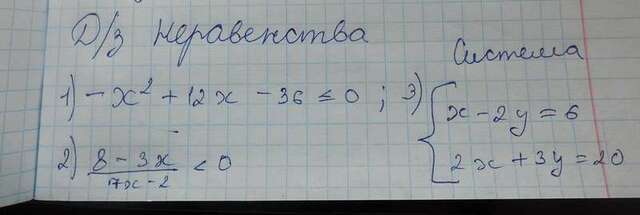 Д/з Неравенства
Система
1) -x² + 12x - 36 ≤ 0 ; 3) { x - 2y = 6
2x + 3y = 20
2) (8 - 3x)/(17x - 2) < 0